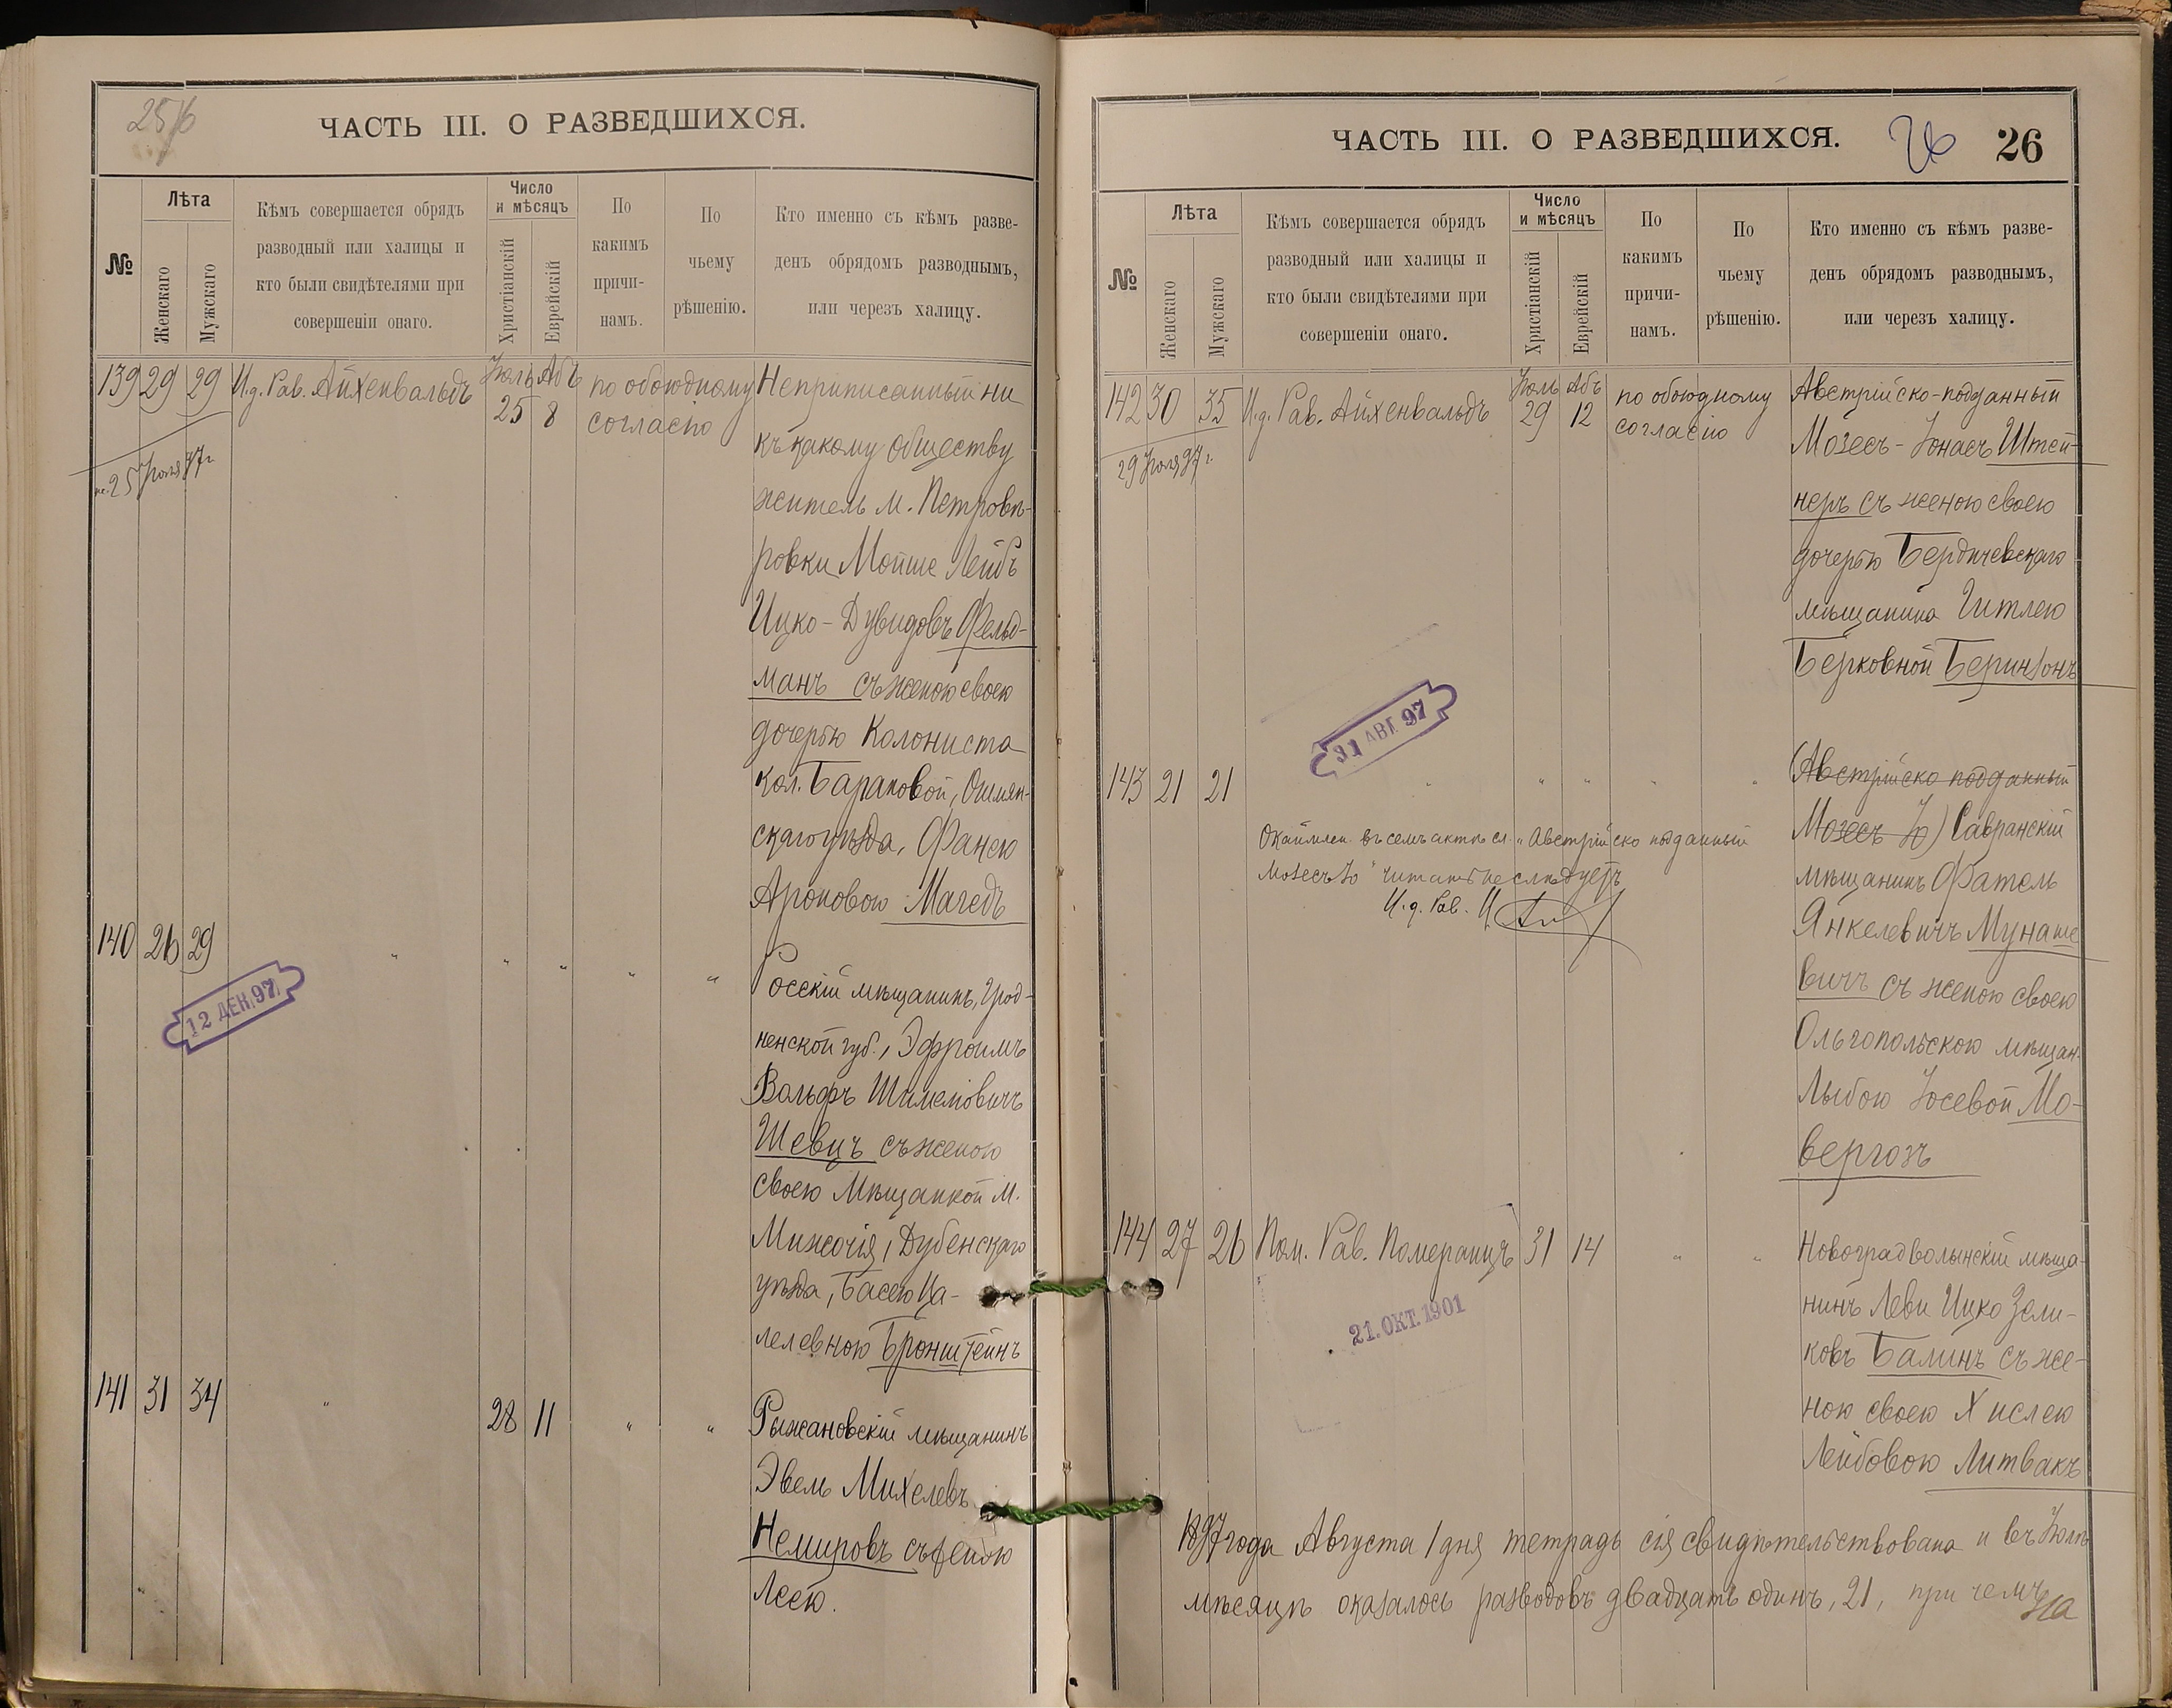 25/6
ЧАСТЬ III. О РАЗВЕДШИХСЯ.
№
Лѣта
Женскаго
Мужскаго
Кѣмъ совершается обрядъ
разводный или халицы и
кто были свидѣтелями при
совершеніи онаго.
Число
и мѣсяцъ
Христіанскій
Еврейскій
По
какимъ
причи-
намъ.
По
чьему
рѣшенію.
Кто именно съ кѣмъ разве-
денъ обрядомъ разводнымъ,
или черезъ халицу.
139 29 29 И.д. Рав. Айхенвальдъ Іюль 25 Абъ 8 по обоюдному
согласію
25 Іюля 97 г.
Неприписанный ни
къ какому обществу
житель м. Петровѣ-
ровки Мойше Лейбъ
Ицко-Дувидовъ Фельд-
манъ съ женою своею
дочерью Колониста
кол. Барановой, Ошмян-
скаго уѣзда, Фанею
Ароновою Магедъ
140 26 29 " " " " "
12 ДЕК. 97
Росскій мѣщанинъ, Грод-
ненской губ., Эфроимъ
Вольфъ Шимеліовичъ
Шевцъ съ женою
своею Мѣщанкой м.
Мизочія, Дубенскаго
уѣзда, Басею Ца-
лелевною Бронштейнъ
141 31 34 " 28 11 " "
Рыжановскій мѣщанинъ
Эвель Михелевъ
Немировъ съ женою
Леею.
ЧАСТЬ III. О РАЗВЕДШИХСЯ.
26 26
№
Лѣта
Женскаго
Мужскаго
Кѣмъ совершается обрядъ
разводный или халицы и
кто были свидѣтелями при
совершеніи онаго.
Число
и мѣсяцъ
Христіанскій
Еврейскій
По
какимъ
причи-
намъ.
По
чьему
рѣшенію.
Кто именно съ кѣмъ разве-
денъ обрядомъ разводнымъ,
или черезъ халицу.
142 30 35 И.д. Рав. Айхенвальдъ Іюль 29 Абъ 12 по обоюдному
согласію
29 Іюля 97 г.
Австрійско-подданный
Мозесъ-Іонасъ Штей-
неръ съ женою своею
дочерью Бердичевскаго
мѣщанина Гитлею
Берковной Беринзонъ
31 АВГ. 97
143 21 21 " " " " "
(Австрійско подданный
Мозесъ Іо) Савранскій
мѣщанинъ Фатель
Янкелевичъ Мунаше
вичъ съ женою своею
Ольгопольскою мѣщан.
Лыбою Іосевой Мо-
вергозъ
въ семъ актѣ сл. "Австрійско подданный
Мозесъ Іо" читать не слѣдуетъ
И.д. Рав.
144 27 26 Пом. Рав. Померанцъ 31 14 " "
21. ОКТ. 1901
Новоградволынскій мѣща-
нинъ Леви Ицко Зели-
ковъ Балинъ съ же-
ною своею Хислею
Лейбовою Литвакъ
1897 года Августа 1 дня тетрадь сія свидѣтельствована и въ Іюлѣ
мѣсяцѣ оказалось разводовъ двадцать одинъ, 21, при чемъ на